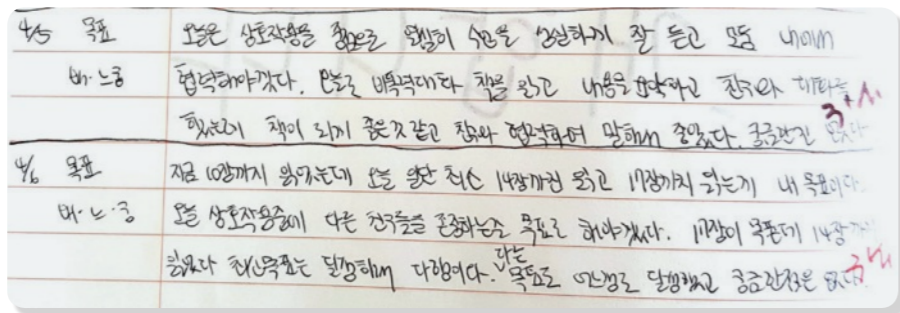 4/5 목표 오늘은 상호작용을 중점으로 원활히 수업을 성실하게 잘 듣고 모둠 내에서
배·느·궁 협력해야겠다. 오늘은 비폭력대화 책을 읽고 내용을 파악하고 친구와 대화를
했는데 책이 되게 좋은 것 같고 친구와 협력하며 말해서 좋았다. 궁금한건 없다
4/6 목표 지금 10장까지 읽었는데 오늘 일단 최소 14장까진 읽고 17장까지 읽는게 내 목표이다.
배·느·궁 오늘 상호작용중에 다른 친구들을 존중하는 목표로 해야겠다. 17장이 목푠데 14장까지
읽었다 최소목표는 달성해서 다행이다. 다른 목표도 어느정도 달성했고 궁금한점은 없다.